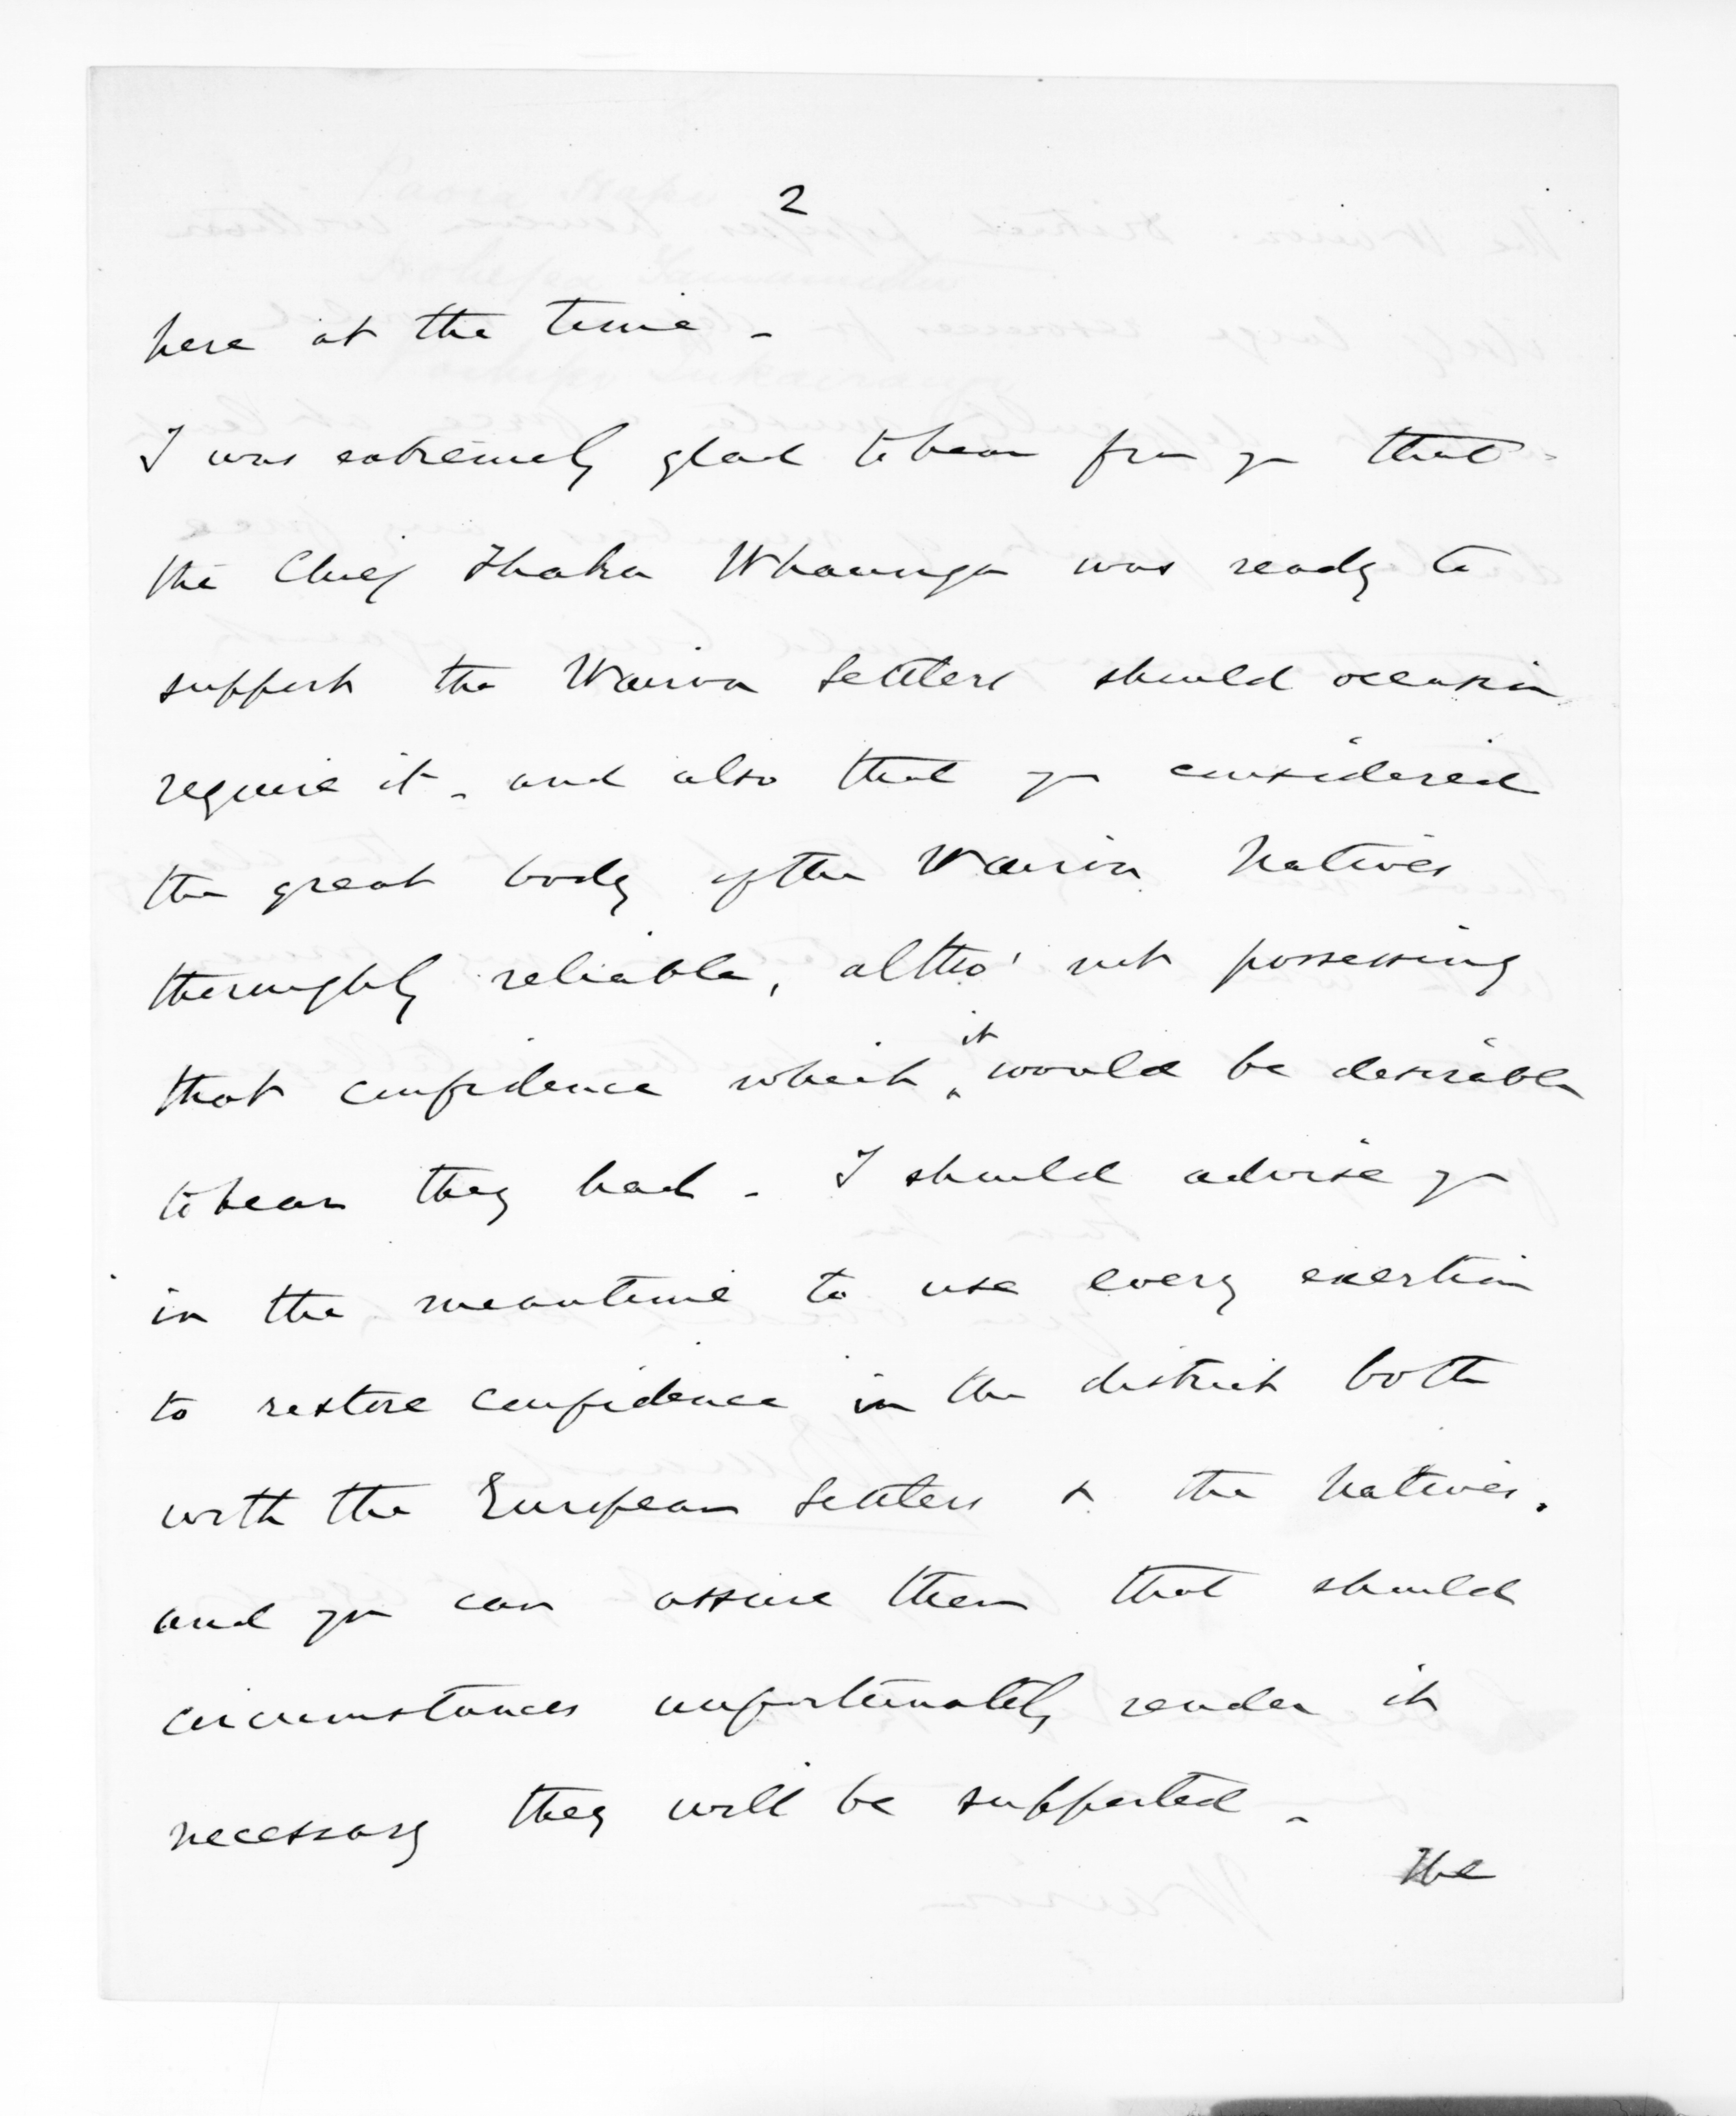 2
here at the time -
I was extremely glad to hear from you that
the Chief Ihaka Whaanga was ready to
support the Wairoa Settlers should occasion
require it - and also that you considered
the great body of the Wairoa Natives
thoroughly reliable, altho' not possessing
that confidence which it would be desirable
to hear they had - I should advise you
in the meantime to use every exertion
to restore confidence in the district both
with the European Settlers & the Natives.
and you can assure them that should
circumstances unfortunately render it
necessary they will be supported -
The